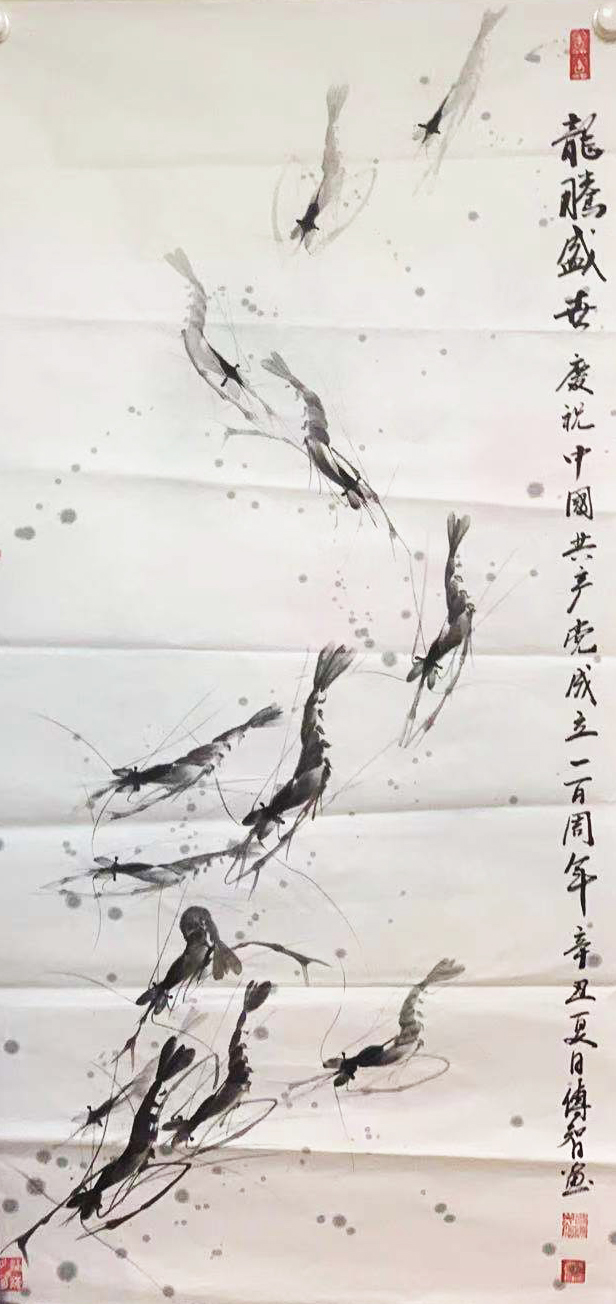 龍騰盛世 慶祝中國共产党成立一百周年 辛丑夏日傅智画